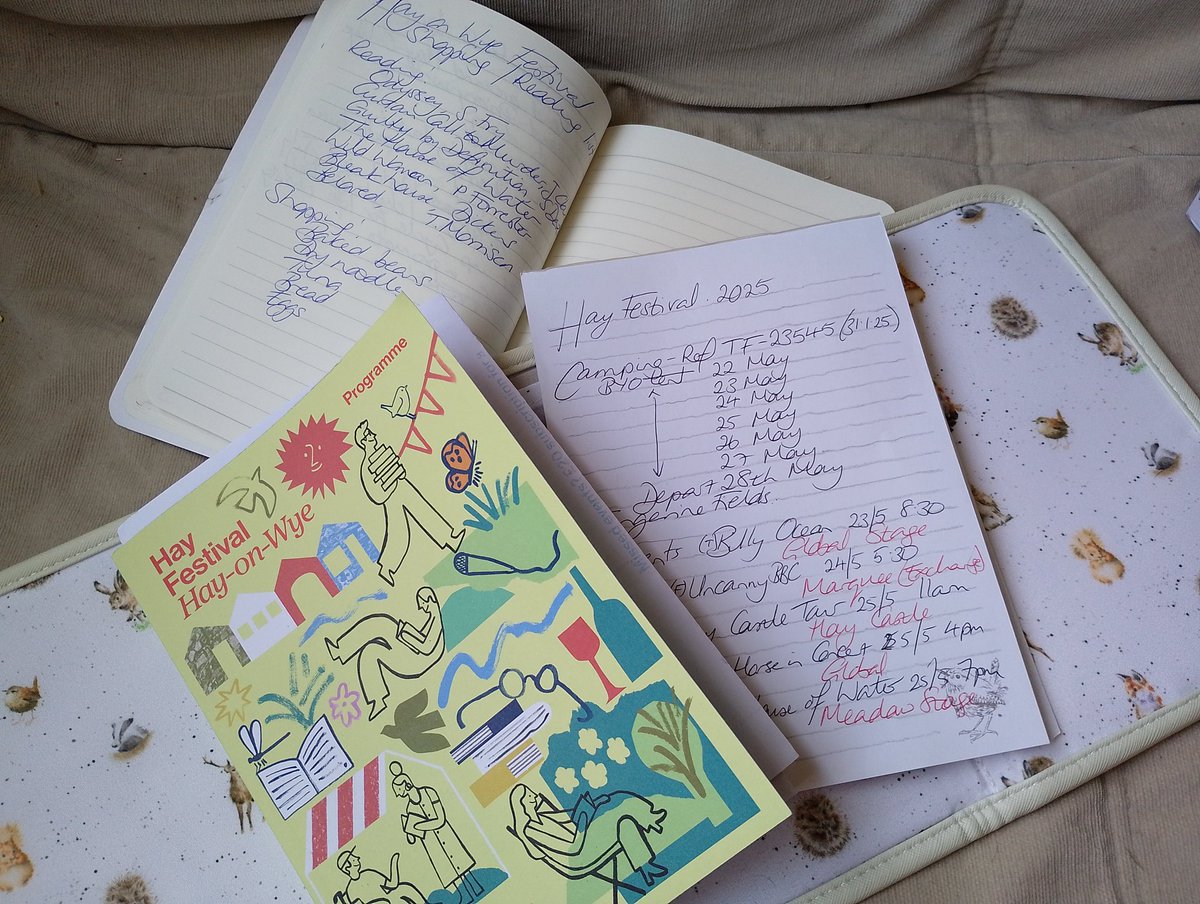 Hay on Wye Festival
Shopping / Reading
Reading
Odyssey S Fry
Curtain Call to Murder, J
Guilty by Definition S De
The House of Water
Wild Woman, P Forrester
Bleak house Dickens
Beloved. T. Morrison
Shopping!
Baked beans
Dry noodle
Tuna
Bread
Eggs
Programme
Hay
Festival
Hay-on-Wye
Hay Festival. 2025
Camping-Ref TF-23545 (31.1.25.)
BYO tent 22 May
23 May
24 May
25 May
26 May
27 May
Depart 28th May
Fields.
Billy Ocean 23/5 8:30
Global Stage
Uncanny BBC 24/5 5:30
Marquee (Exchange)
Castle Tour 25/5 11am
Hay Castle
Horse in Concert 25/5 4pm
Global
House of Water 25/5. 7pm
Meadow Stage